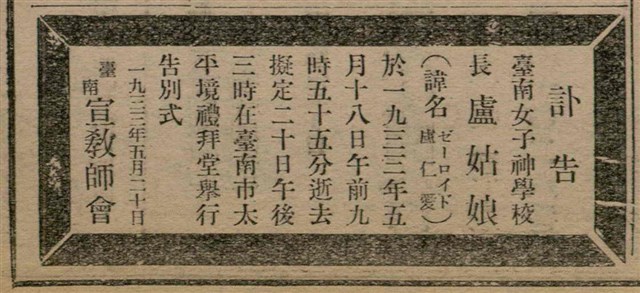 訃告
臺南女子神學校
長盧姑娘
(諱名 ゼーロイド 盧仁愛)
於一九三三年五
月十八日午前九
時五十五分逝去
擬定二十日午後
三時在臺南市太
平境禮拜堂舉行
告別式
一九三三年五月二十日
臺南宣教師會